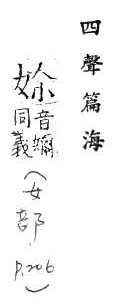 四聲篇海
㚷音嬭同義(女部, P.206)